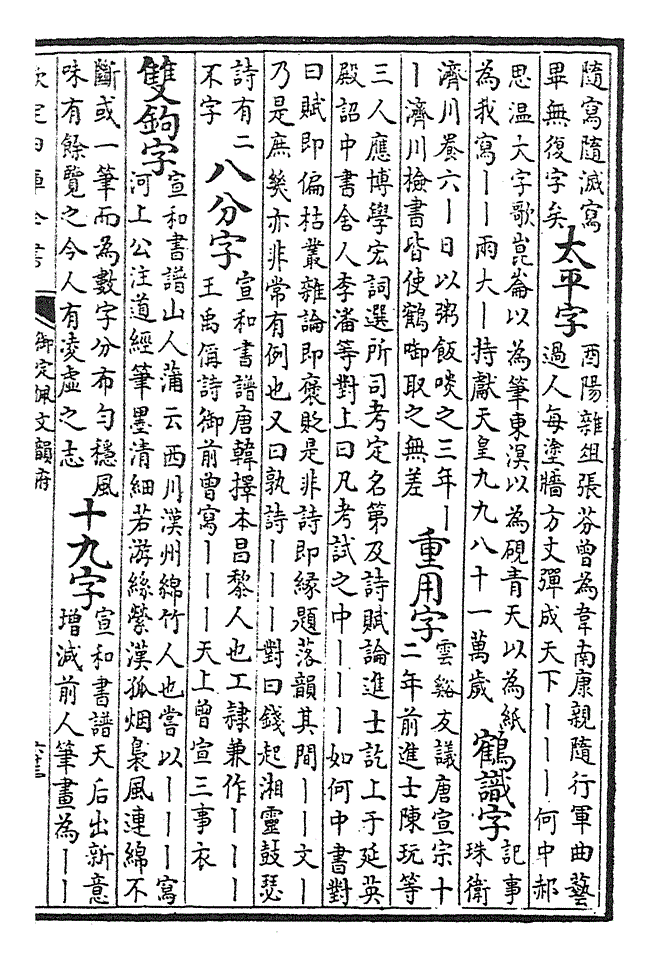 隨寫隨滅寫
畢無復字矣
太平字
酉陽雜俎張芬曾為韋南康親隨行軍曲藝
過人每塗牆方丈彈成天下｜｜｜何中郝
思溫大字歌崑崙以為筆東溟以為硯青天以為紙
為我寫｜｜兩大｜持獻天皇九九八十一萬歲
鶴識字
記事
珠衛
濟川養六｜日以粥飯啖之三年｜
｜濟川檢書皆使鶴啣取之無差
重用字
雲谿友議唐宣宗十
二年前進士陳玩等
三人應博學宏詞選所司考定名第及詩賦論進士訖上于延英
殿詔中書舍人李潘等對上曰凡考試之中｜｜｜如何中書對
曰賦即偏枯叢雜論即褒貶是非詩即緣題落韻其間｜｜文｜
乃是庶幾亦非常有例也又曰孰詩｜｜｜對曰錢起湘靈鼓瑟
詩有二
不字
八分字
宣和書譜唐韓擇本昌黎人也工隸兼作｜｜｜
王禹偁詩御前曾寫｜｜｜天上曾宣三事衣
雙鉤字
宣和書譜山人蒲云西川漢州綿竹人也嘗以｜｜｜寫
河上公注道經筆墨清細若游絲縈漢孤烟裊風連綿不
斷或一筆而為數字分布勻穩風
味有餘覽之令人有凌虛之志
十九字
宣和書譜天后出新意
增減前人筆畫為｜｜
欽定四庫全書
御定佩文韻府